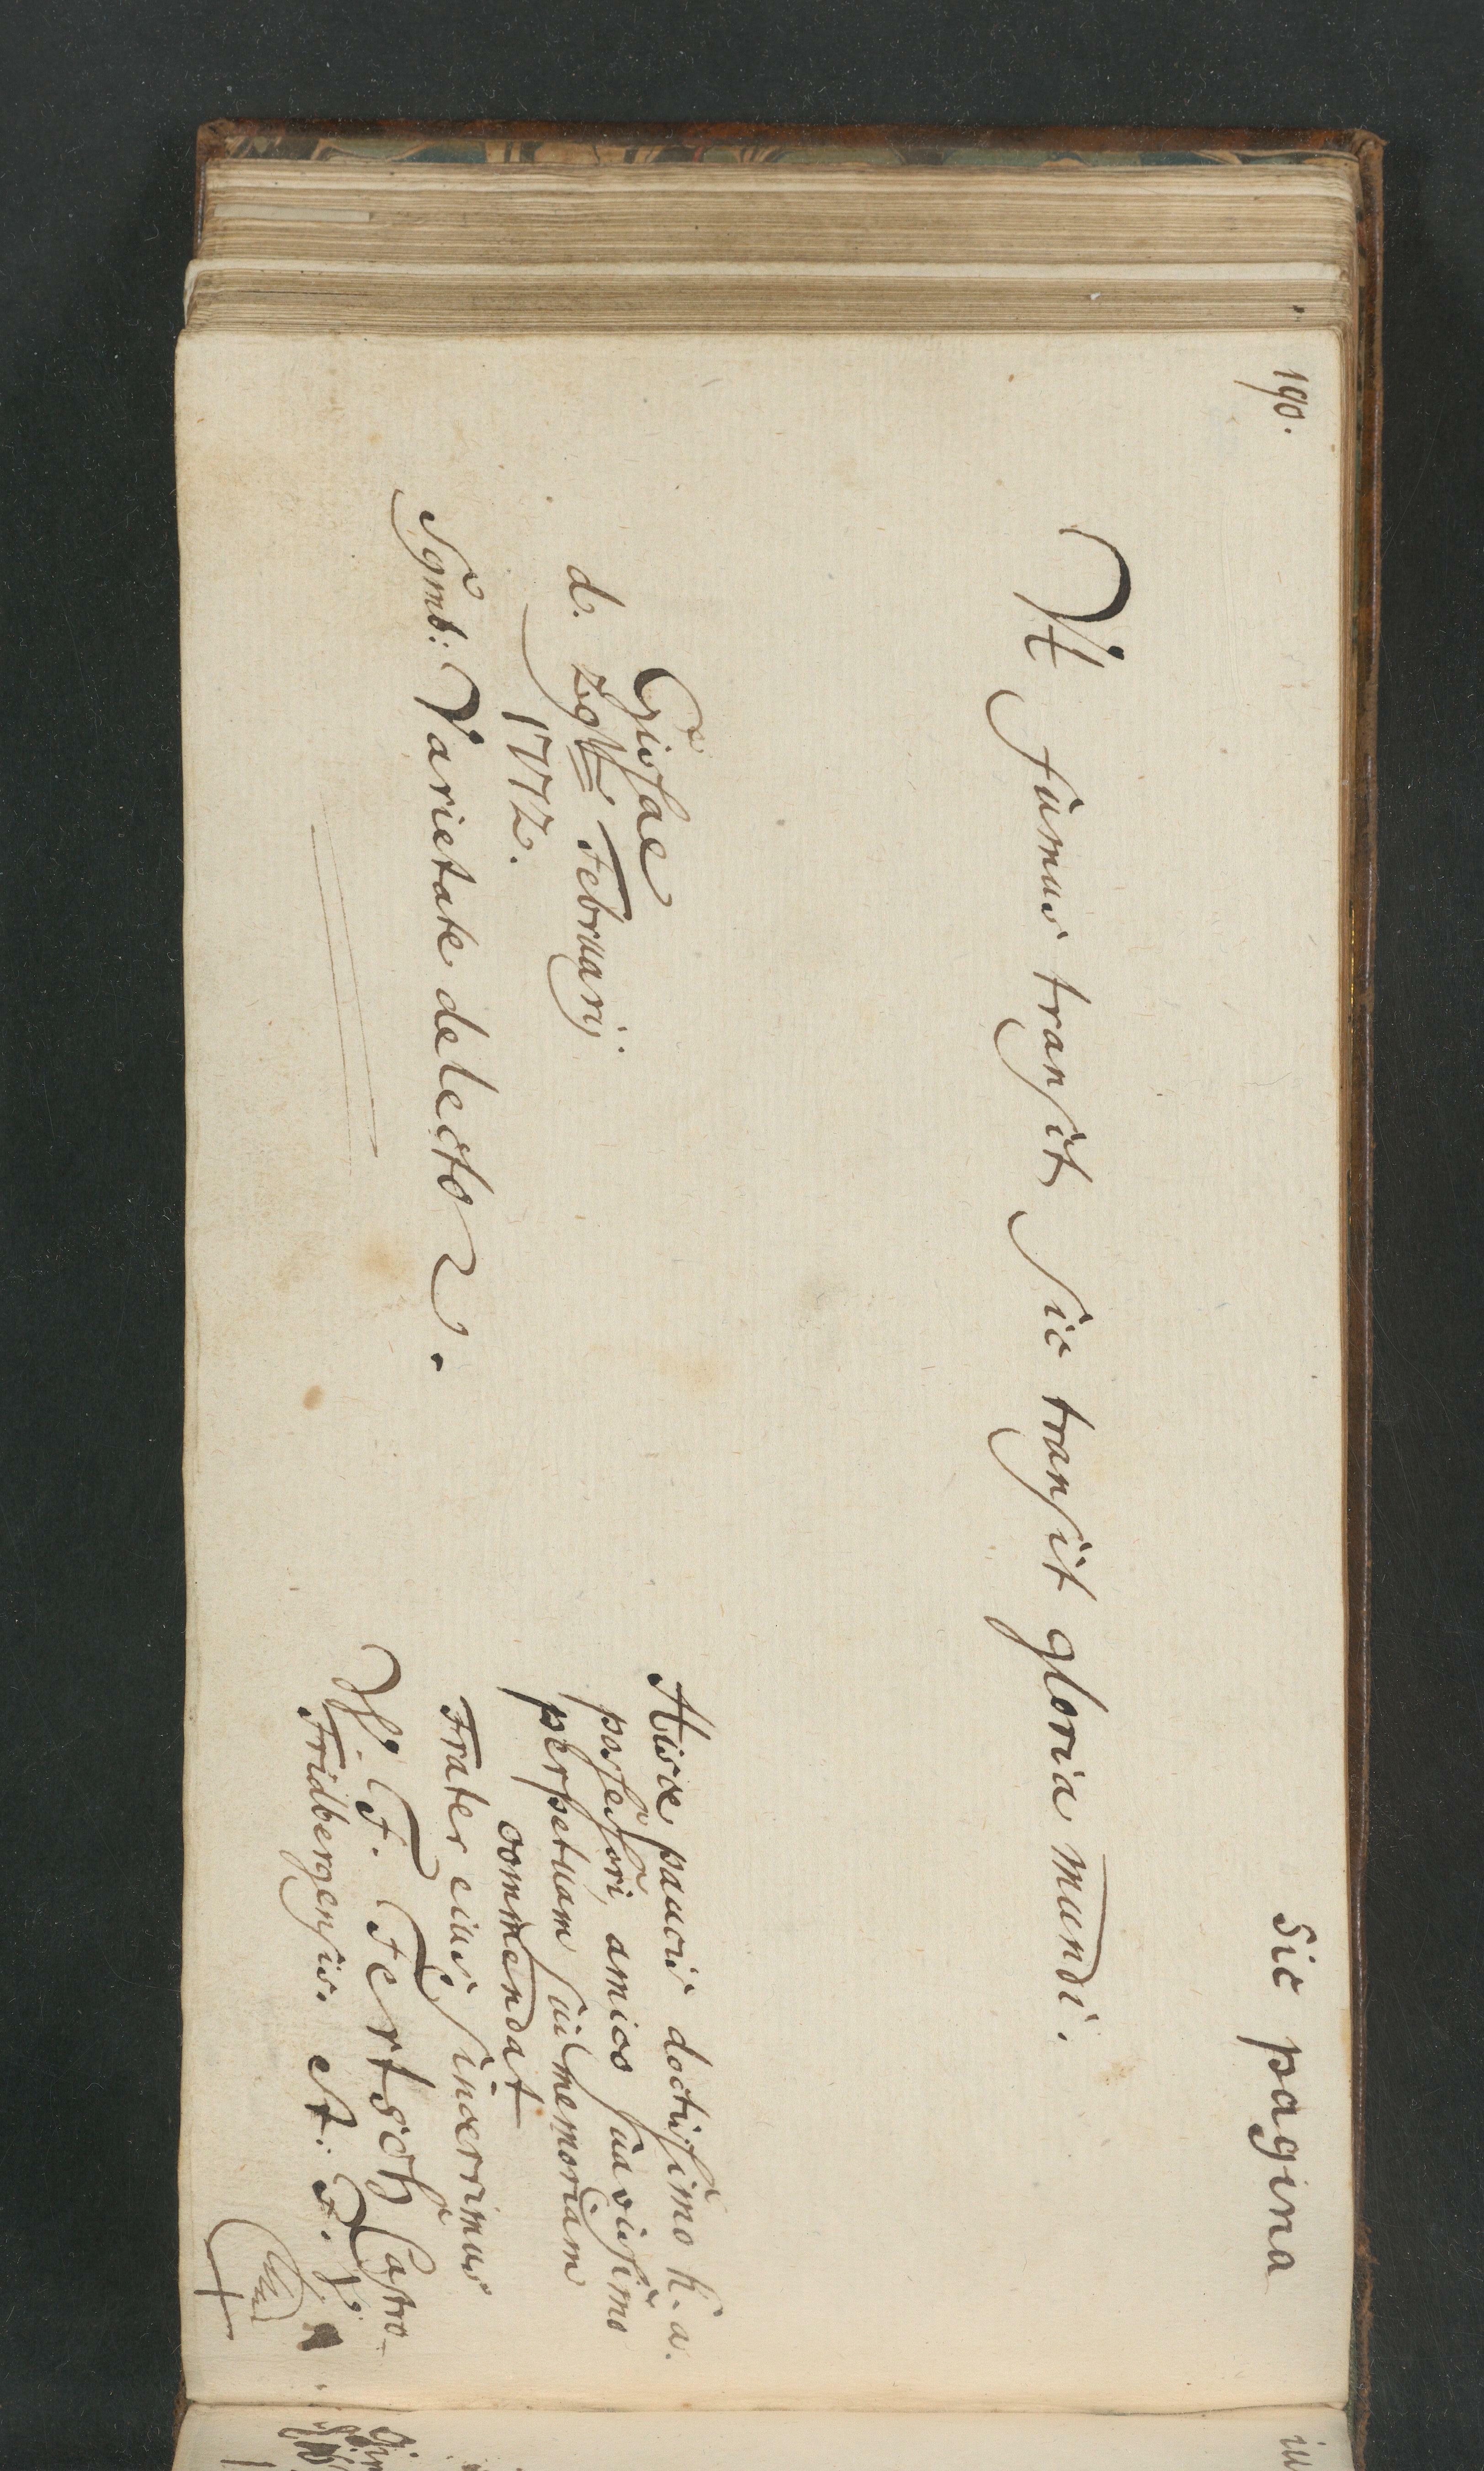 190.
Sic pagina
Vt fumus transit, Sic transit gloria mundi.
Gissae
d. 29t Februarij
1772.
Symb: Varietate delector.
Hisce paucis doctissimo h. a.
possessori, amico suavissimo
perpetuam sui memoriam
commendat
Frater eius sincerrimus
F. Fertsch Castro-
Fridbergensis.